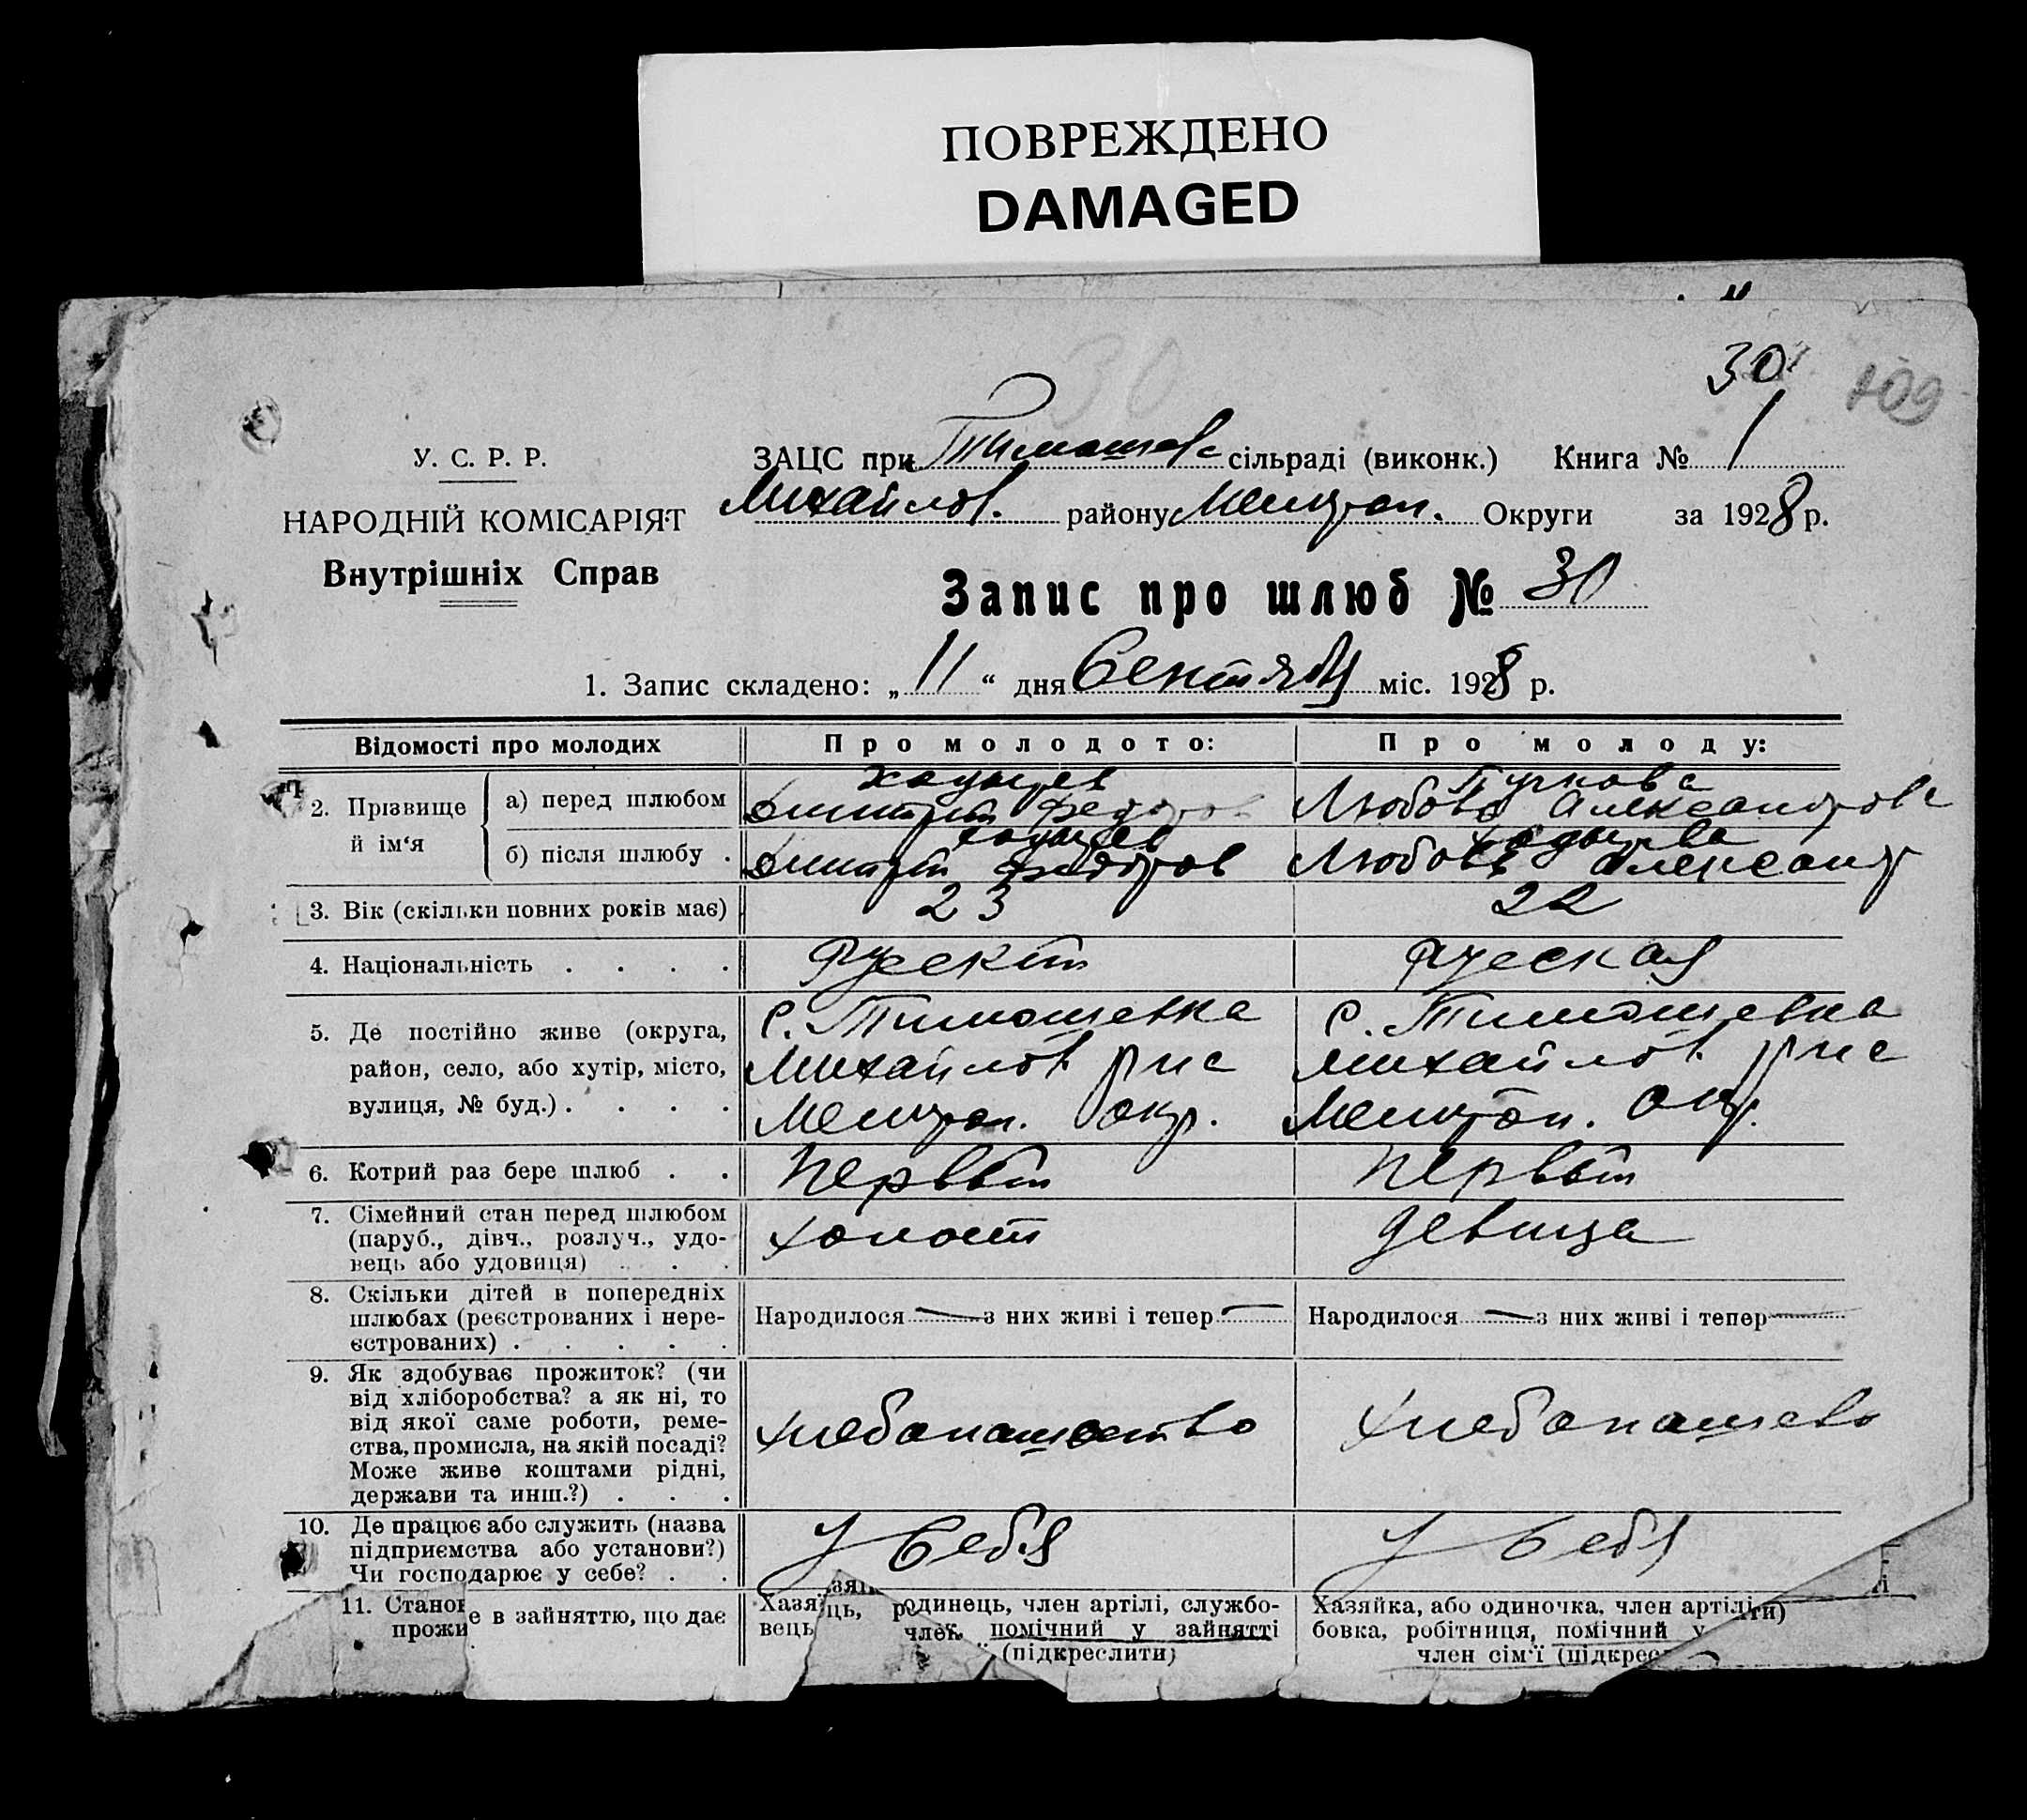 ПОВРЕЖДЕНО
DAMAGED
30
109
У. С. Р. Р.
НАРОДНІЙ КОМІСАРІЯТ
Внутрішніх Справ
ЗАЦС при Тимошев сільраді (виконк.) Книга № 1
Михайлов. району Мелитоп. Округи за 1928 р.
Запис про шлюб № 30
1. Запис складено: „ 11 “ дня Сентября міс. 1928 р.
Відомості про молодих
Про молодого:
Про молоду:
2. Прізвище й ім‘я
а) перед шлюбом
Дмитрий Федоров
Пучкова
Любовь Александрова
б) після шлюбу .
Дмитрий Федоров
Любовь Александр
3. Вік (скільки повних років має)
23
22
4. Національність . . . .
Руский
Руская
5. Де постійно живе (округа,
район, село, або хутір, місто,
вулиця, № буд.) . . . .
с. Тимошевка
Михайлов. рна
Мелитоп. окр.
с. Тимошевка
Михайлов. рна
Мелитоп. окр.
6. Котрий раз бере шлюб . .
Первый
Первый
7. Сімейний стан перед шлюбом
(паруб., дівч., розлуч., удо-
вець або удовиця) . . .
холост
девица
8. Скільки дітей в попередніх
шлюбах (реєстрованих і нере-
єстрованих) . . . . .
Народилося — з них живі і тепер —
Народилося — з них живі і тепер —
9. Як здобуває прожиток? (чи
від хліборобства? а як ні, то
від якої саме роботи, реме-
ства, промисла, на якій посаді?
Може живе коштами рідні,
держави та инш.?) . . .
Хлебопашество
Хлебопашево
10. Де працює або служить (назва
підприємства або установи?)
Чи господарює у себе? . .
У Себя
У Себя
11. Станов
е в зайняттю, що дає
прожи
Хазя
ць, р одинець, член артілі, службо-
вець
член помічний у зайнятті
(підкреслити)
Хазяйка, або одиночка, член артілі,
бовка, робітниця, помічний у
член сім‘ї (підкрес